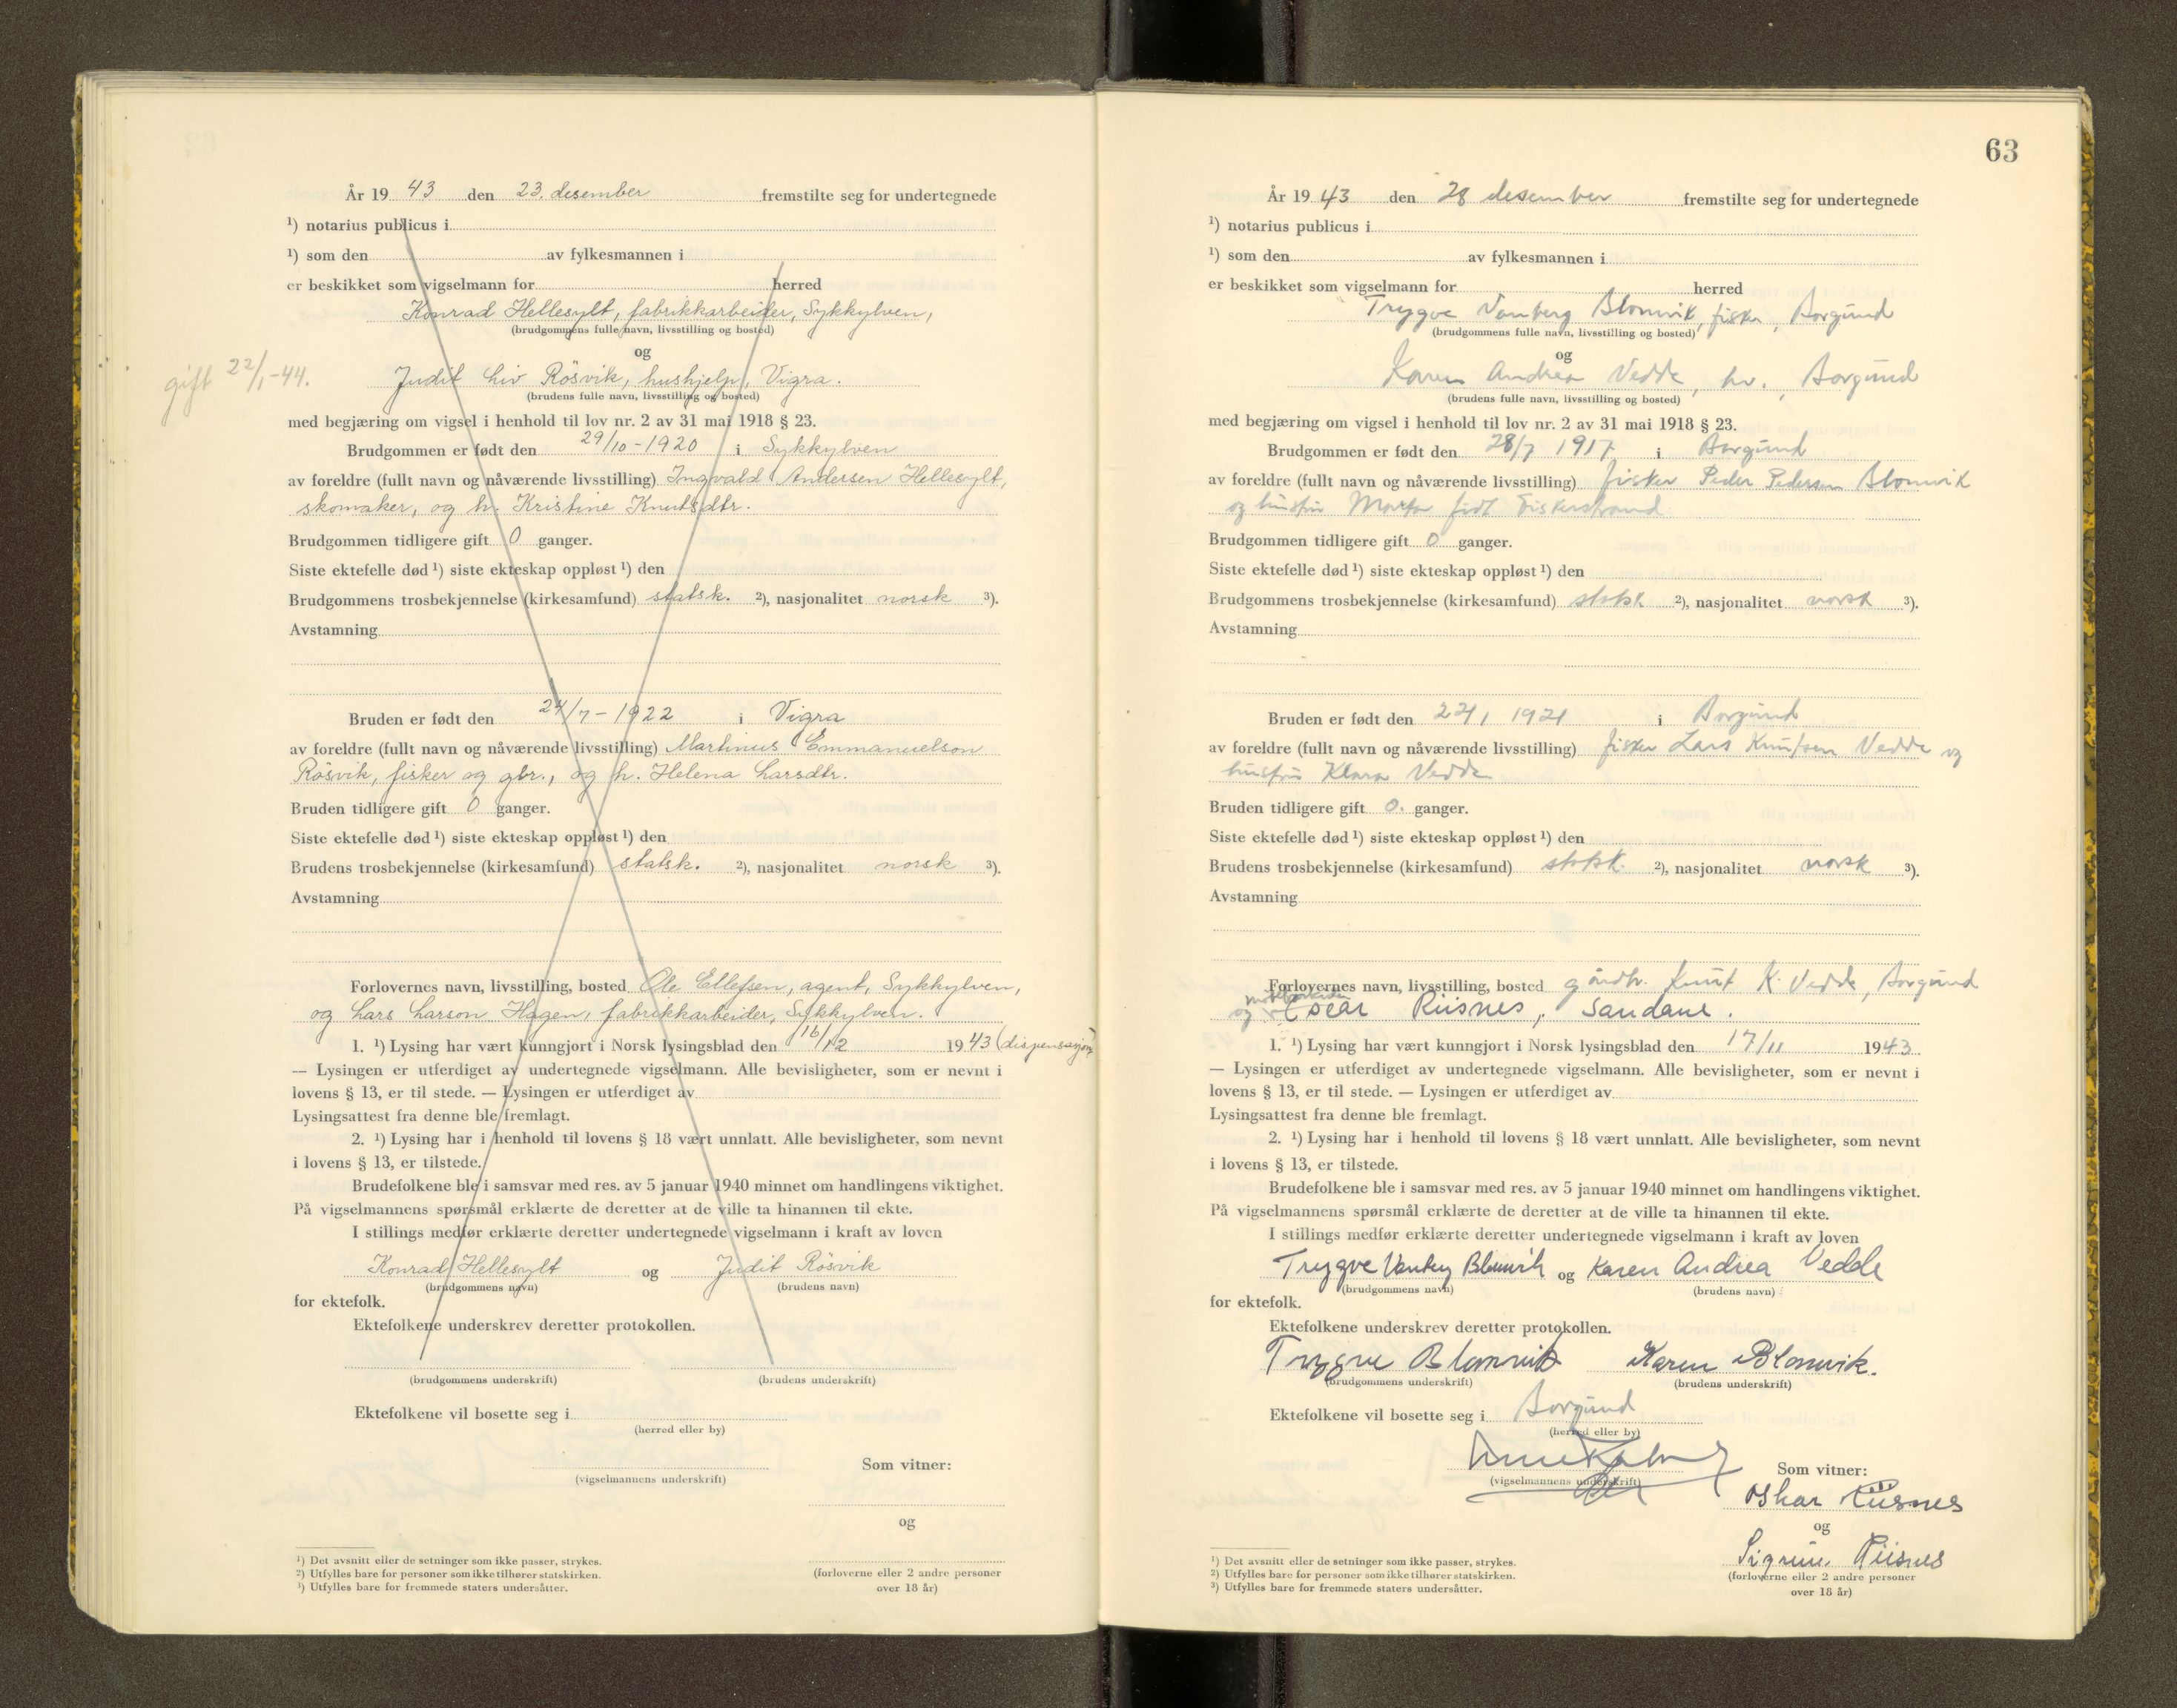 År 19 43 den 23. desember fremstilte seg for undertegnede
¹) notarius publicus i
¹) som den av fylkesmannen i
er beskikket som vigselmann for herred
Konrad Hellesylt, fabrikkarbeider, Sykkylven,
(brudgommens fulle navn, livsstilling og bosted)
og
gift 22/1-44.
Judit Liv Rösvik, hushjelp, Vigra.
(brudens fulle navn, livsstilling og bosted)
med begjæring om vigsel i henhold til lov nr. 2 av 31 mai 1918 § 23.
Brudgommen er født den 29/10-1920 i Sykkylven
av foreldre (fullt navn og nåværende livsstilling) Ingvald Andersen Hellesylt,
skomaker, og h. Kristine Knutsdtr.
Brudgommen tidligere gift 0 ganger.
Siste ektefelle død ¹) siste ekteskap oppløst ¹) den
Brudgommens trosbekjennelse (kirkesamfund) statsk. ²), nasjonalitet norsk ³).
Avstamning
Bruden er født den 24/7-1922 i Vigra
av foreldre (fullt navn og nåværende livsstilling) Martinus Emmanuelson
Rösvik, fisker og gbr., og h. Helena Larsdtr.
Bruden tidligere gift 0 ganger.
Siste ektefelle død ¹) siste ekteskap oppløst ¹) den
Brudens trosbekjennelse (kirkesamfund) statsk. ²), nasjonalitet norsk ³).
Avstamning
Forlovernes navn, livsstilling, bosted Ole Ellefsen, agent, Sykkylven,
og Lars Larson Hagen, fabrikkarbeider, Sykkylven.
1. ¹) Lysing har vært kunngjort i Norsk lysingsblad den 16/12 19 43 (dispensasjon)
— Lysingen er utferdiget av undertegnede vigselmann. Alle bevisligheter, som er nevnt i
lovens § 13, er til stede. — Lysingen er utferdiget av
Lysingsattest fra denne ble fremlagt.
2. ¹) Lysing har i henhold til lovens § 18 vært unnlatt. Alle bevisligheter, som nevnt
i lovens § 13, er tilstede.
Brudefolkene ble i samsvar med res. av 5 januar 1940 minnet om handlingens viktighet.
På vigselmannens spørsmål erklærte de deretter at de ville ta hinannen til ekte.
I stillings medfør erklærte deretter undertegnede vigselmann i kraft av loven
Konrad Hellesylt og Judit Rösvik
(brudgommens navn) (brudens navn)
for ektefolk.
Ektefolkene underskrev deretter protokollen.
(brudgommens underskrift) (brudens underskrift)
Ektefolkene vil bosette seg i
(herred eller by)
Som vitner:
(vigselmannens underskrift)
og
¹) Det avsnitt eller de setninger som ikke passer, strykes.
²) Utfylles bare for personer som ikke tilhører statskirken.
³) Utfylles bare for fremmede staters undersåtter.
(forloverne eller 2 andre personer
over 18 år)
63
År 19 43 den 28 desember fremstilte seg for undertegnede
¹) notarius publicus i
¹) som den av fylkesmannen i
er beskikket som vigselmann for herred
Trygve Vanberg Blomvik, fisker, Borgund
(brudgommens fulle navn, livsstilling og bosted)
og
Karen Andrea Vedde, hv., Borgund
(brudens fulle navn, livsstilling og bosted)
med begjæring om vigsel i henhold til lov nr. 2 av 31 mai 1918 § 23.
Brudgommen er født den 28/7 1917 i Borgund
av foreldre (fullt navn og nåværende livsstilling) fisker Peder Pedersen Blomvik
og hustru Marta født Eiskerstrand
Brudgommen tidligere gift 0 ganger.
Siste ektefelle død ¹) siste ekteskap oppløst ¹) den
Brudgommens trosbekjennelse (kirkesamfund) statsk ²), nasjonalitet norsk ³).
Avstamning
Bruden er født den 22/1 1921 i Borgund
av foreldre (fullt navn og nåværende livsstilling) fisker Lars Knutsen Vedde og
hustru Klara Vedde
Bruden tidligere gift 0. ganger.
Siste ektefelle død ¹) siste ekteskap oppløst ¹) den
Brudens trosbekjennelse (kirkesamfund) statsk. ²), nasjonalitet norsk ³).
Avstamning
Forlovernes navn, livsstilling, bosted gårdbr. Knut K. Vedde, Borgund
og Oscar Riisnes, Sandane.
1. ¹) Lysing har vært kunngjort i Norsk lysingsblad den 17/11 1943
— Lysingen er utferdiget av undertegnede vigselmann. Alle bevisligheter, som er nevnt i
lovens § 13, er til stede. — Lysingen er utferdiget av
Lysingsattest fra denne ble fremlagt.
2. ¹) Lysing har i henhold til lovens § 18 vært unnlatt. Alle bevisligheter, som nevnt
i lovens § 13, er tilstede.
Brudefolkene ble i samsvar med res. av 5 januar 1940 minnet om handlingens viktighet.
På vigselmannens spørsmål erklærte de deretter at de ville ta hinannen til ekte.
I stillings medfør erklærte deretter undertegnede vigselmann i kraft av loven
Trygve Blomvik og Karen Andrea Vedde
(brudgommens navn) (brudens navn)
for ektefolk.
Ektefolkene underskrev deretter protokollen.
Trygve Blomvik Karen Blomvik.
(brudgommens underskrift) (brudens underskrift)
Ektefolkene vil bosette seg i Borgund
(herred eller by)
Som vitner:
(vigselmannens underskrift)
Oskar Riisnes
og
Sigrun Riisnes
¹) Det avsnitt eller de setninger som ikke passer, strykes.
²) Utfylles bare for personer som ikke tilhører statskirken.
³) Utfylles bare for fremmede staters undersåtter.
(forloverne eller 2 andre personer
over 18 år)